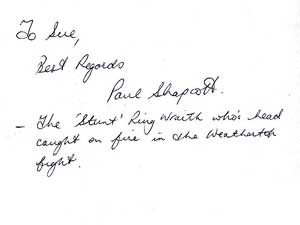 To Sue,
Best Regards
Paul Shapcott.
- The 'Stunt' Ring Wraith who's head
caught on fire in the Weathertop
fight.